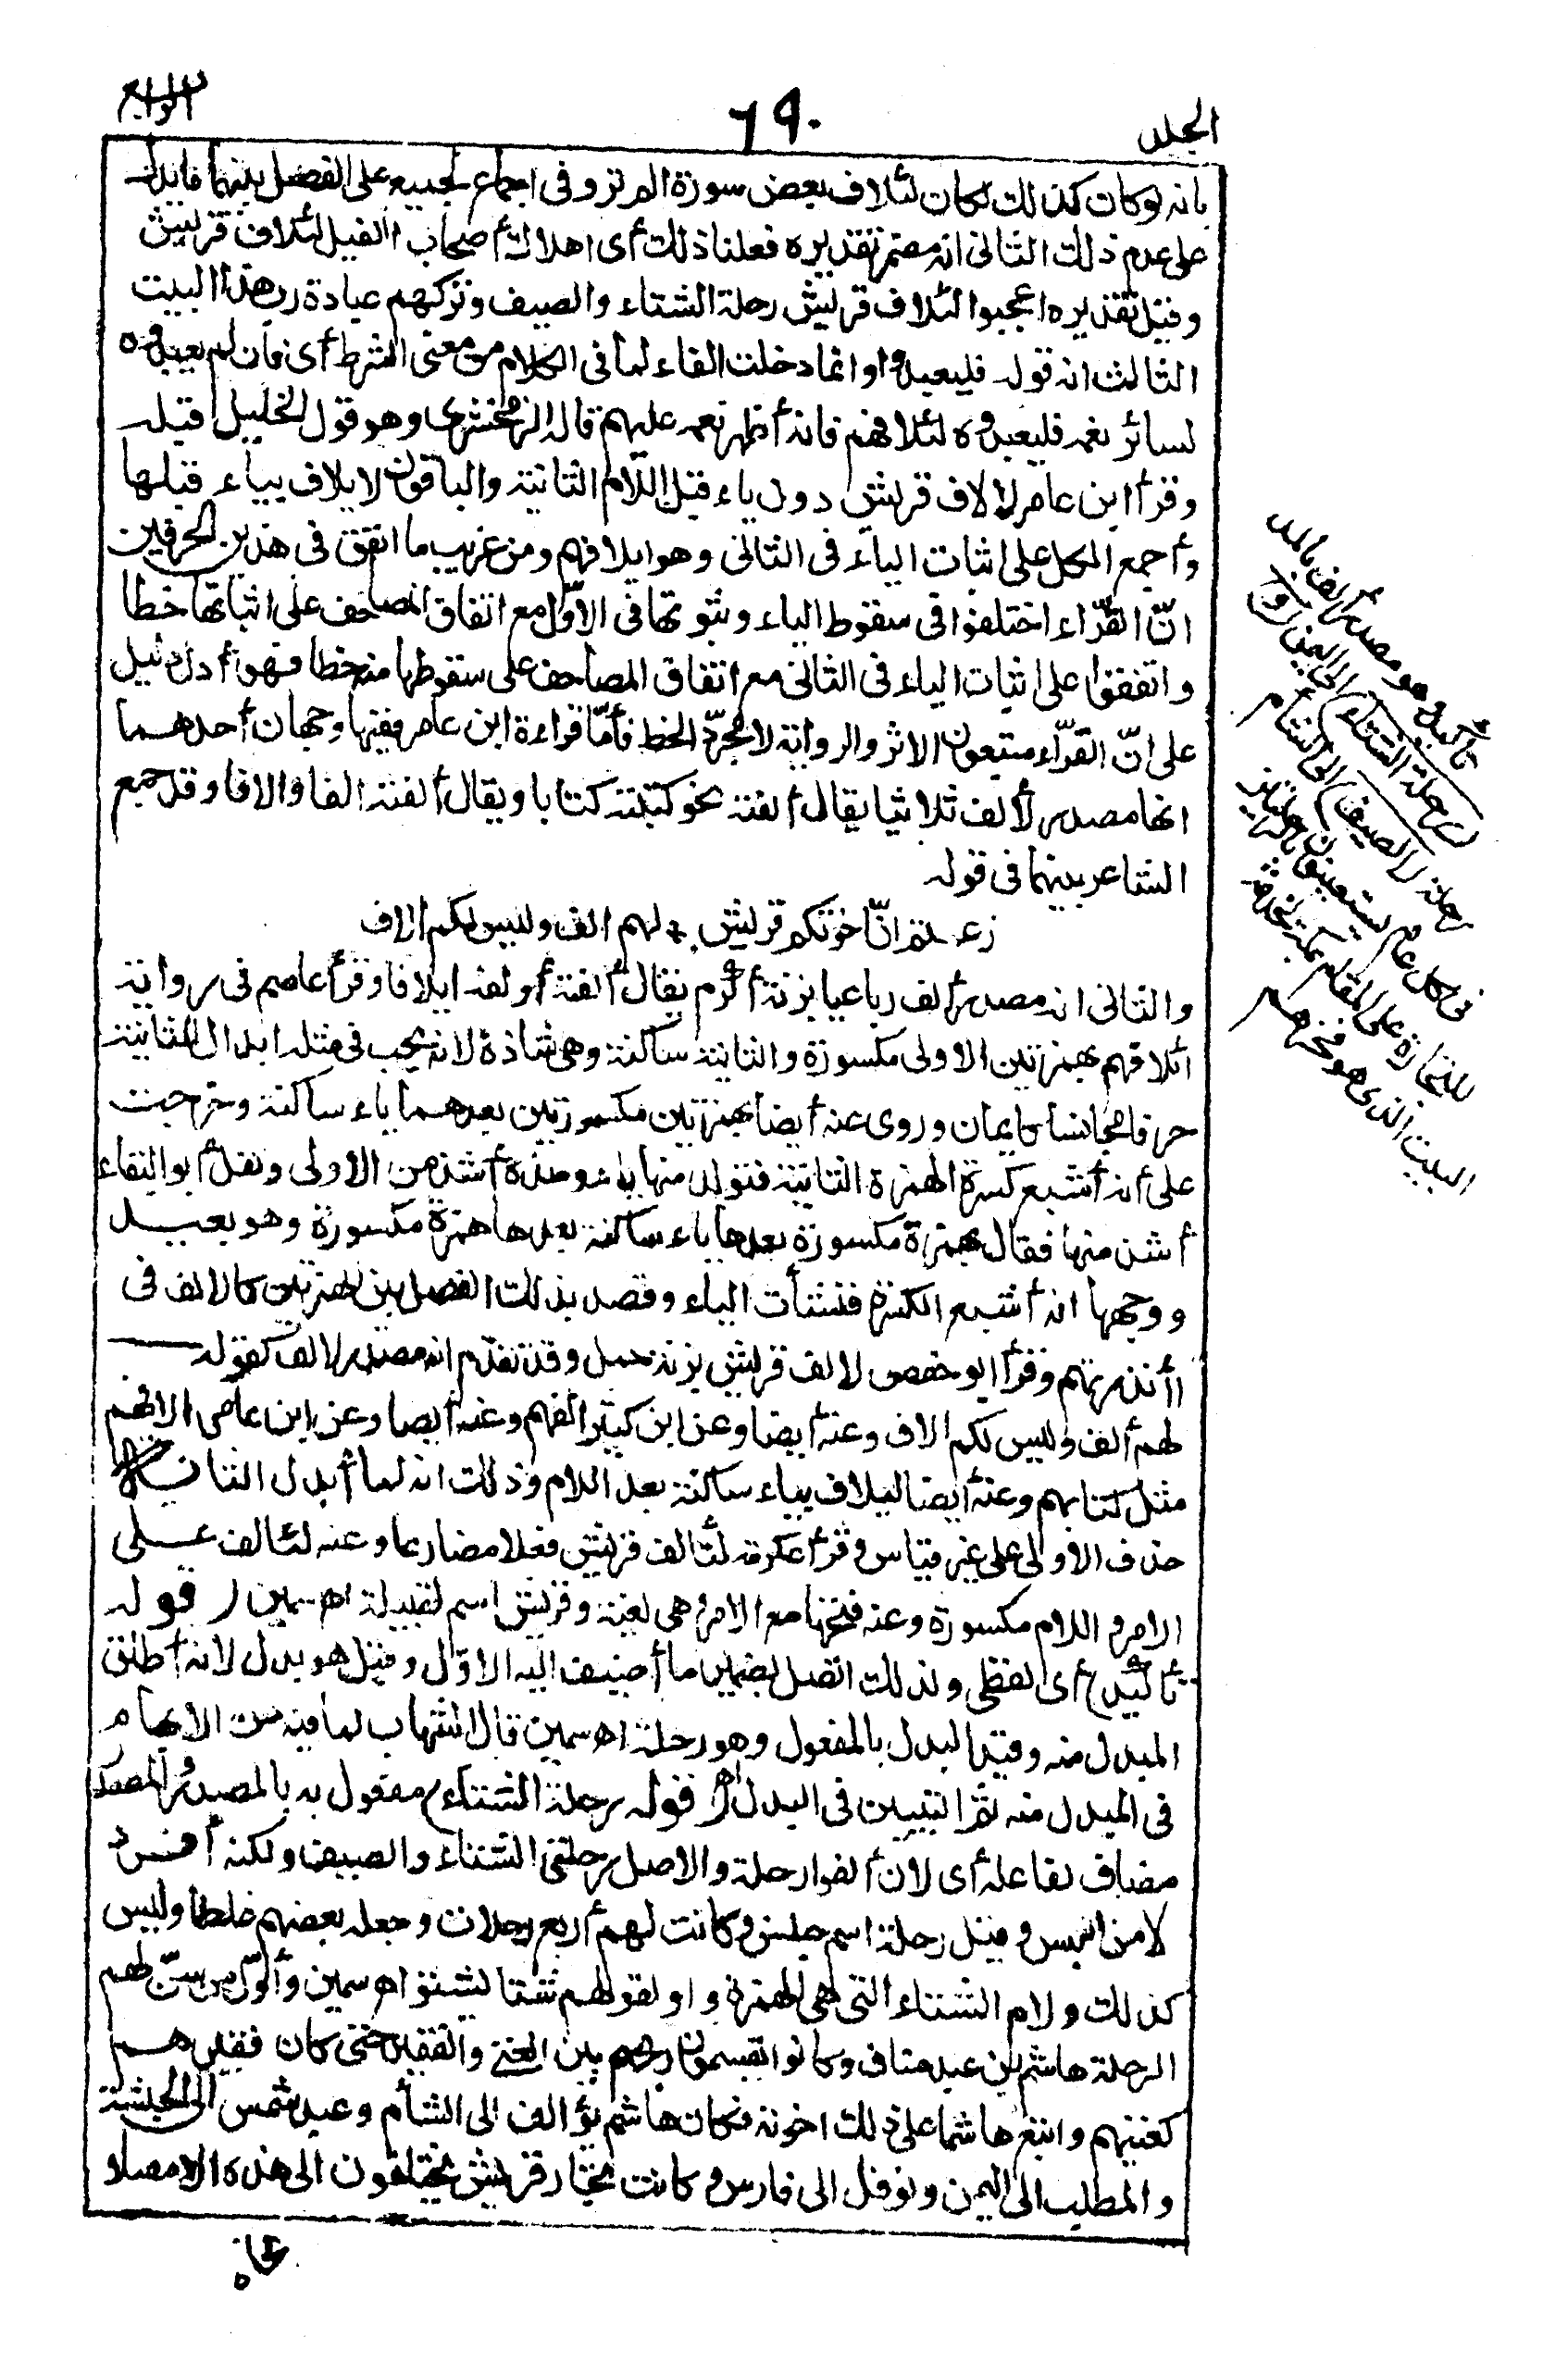 الجلد
٦٩٠
الرابع
بانه لو كان كذلك لكان لئلاف بعض سورة الم تر وفى اجماع الجميع على الفصل بينهما مايدل
على عدم ذلك الثانى انه مضمر تقديره فعلنا ذلك أى اهلاك أصحاب الفيل لئلاف قريش
وقيل تقديره اعجبوا لئلاف قريش رحلة الشتاء والصيف وتركهم عبادة رب هذا البيت
الثالث انه قوله فليعبدوا وانما دخلت الفاء لما فى الكلام من معنى الشرط أى فان لم يعبدوه
لسائر نعمه فليعبدوه لئلافهم فانه أظهر نعمه عليهم قاله الزمخشرى وهو قول الخليل قبله
وقرأ ابن عامر لالاف قريش دون ياء قبل اللام الثانية والباقون لايلاف بياء قبلها
وأجمع الكل على اثبات الياء فى الثانى وهو ايلافهم ومن غريب ما اتفق فى هذين الحرفين
انّ القرّاء اختلفوا فى سقوط الياء وثبوتها فى الاوّل مع اتفاق المصاحف على اثباتها خطا
واتفقوا على اثبات الياء فى الثانى مع اتفاق المصاحف على سقوطها منه خطا فهو أدل دليل
على انّ القرّاء متبعون الاثر والرواية لا مجرّد الخط فأمّا قراءة ابن عامر ففيها وجهان أحدهما
انها مصدر لألف ثلاثيا يقال ألفته نحو كتبته كتابا ويقال ألفته الفا والافا وقد جمع
الشاعر بينهما فى قوله
زعمتم انّ اخوتكم قريش * لهم الف وليس لكم الاف
والثانى انه مصدر ألف رباعيا بزنة أكرم يقال ألفته أولفه ايلافا وقرأ عاصم فى رواية
ائلافهم بهمزتين الاولى مكسورة والثانية ساكنة وهى شاذة لانه يجب فى مثله ابدال الثانية
حرفا مجانسا كايمان وروى عنه أيضا بهمزتين مكسورتين بعدهما ياء ساكنة وخرجت
على أنه أشبع كسرة الهمزة الثانية فتولد منها ياء وهذه أشذ من الاولى ونقل أبو البقاء
أشذ منها فقال بهمزة مكسورة بعدها ياء ساكنة بعدها همزة مكسورة وهو بعيد
ووجهها انه أشبع الكسرة فنشأت الياء وقصد بذلك الفصل بين الهمزتين كالالف فى
اأنذرتهم وقرأ ابو جعفر لالف قريش بزنة حمل وقد تقدم انه مصدر لالف كقوله
لهم ألف وليس لكم الاف وعنه أيضا وعن ابن كثير الفهم وعنه أيضا وعن ابن عامر الافهم
مثل كتابهم وعنه أيضا ليلاف بياء ساكنة بعد اللام وذلك انه لما أبدل الثانية
حذف الاولى على غير قياس وقرأ عكرمة لتألف قريش فعلا مضارعا وعنه لتألف على
الامر و اللام مكسورة وعنه فتحها مع الامر وهى لغية وقريش اسم لقبيلة اه سمين ( قوله
تأكيد) أى لفظى ولذلك اتصل بضمير ما أضيف اليه الاوّل وقيل هو بدل لانه أطلق
المبدل منه وقيد البدل بالمفعول وهو رحلة اه سمين قال الشهاب لما فيه من الابهام
فى المبدل منه ثم التبيين فى البدل اه ( قوله رحلة الشتاء) مفعول به بالمصدر والمصدر
مضاف لفاعله أى لان ألفوا رحلة والاصل رحلتى الشتاء والصيف ولكنه أفرد
لامن اللبس وقيل رحلة اسم جنس وكانت لهم أربع رحلات وجعله بعضهم غلطا وليس
كذلك ولام الشتاء التى هى الهمزة واو لقولهم شتا يشتو اه سمين وأوّل من سنّ لهم
الرحلة هاشم بن عبد مناف وكانوا يقسمون ربحهم بين الغنى والفقير حتى كان فقيرهم
كغنيهم واتبع هاشما على ذلك اخوته فكان هاشم يؤالف الى الشأم وعبد شمس الى الحبشة
والمطلب الى اليمن ونوفل الى فارس وكانت تجار قريش يختلفون الى هذه الامصار
تأكيد وهو مصدر ألف بالمد
(رحلة الشتاء) الى اليمن (و)
رحلة (الصيف) الى الشام
فى كل عام يستعينون بالرحلتين
للتجارة على المقام بمكة لخدمة
البيت الذى هو فخرهم